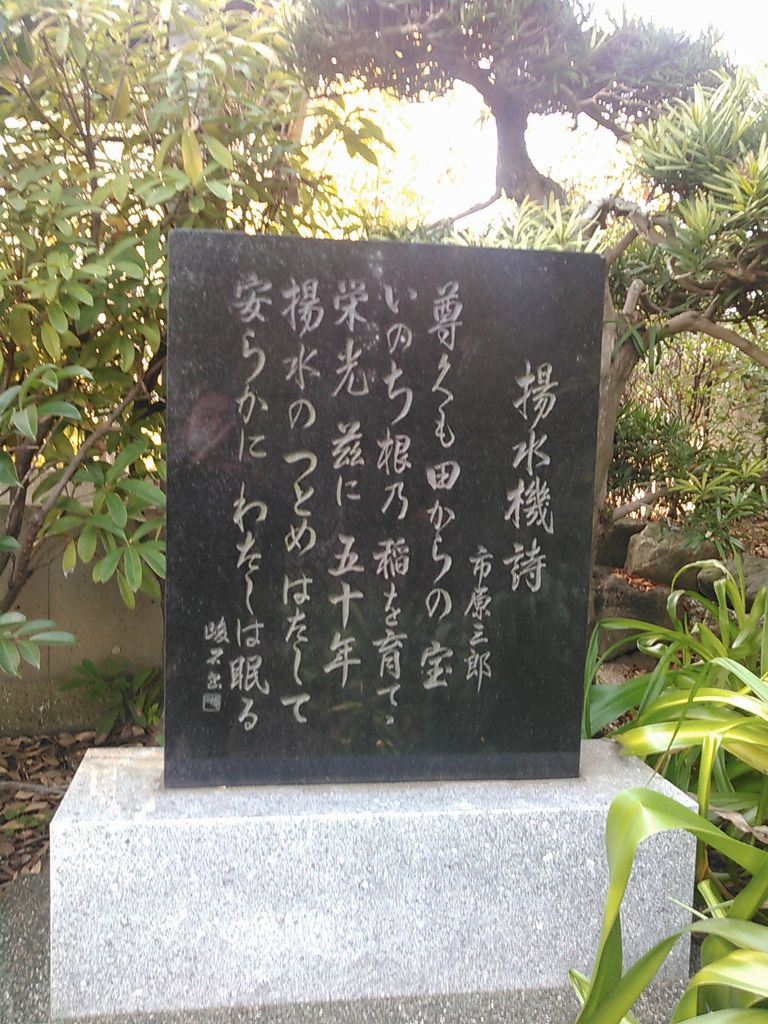 揚水機詩
市原三郎
尊くも田からの宝
いのち根乃 稲を育て
栄光 茲に 五十年
揚水の つとめ はたして
安らかに わたしは眠る